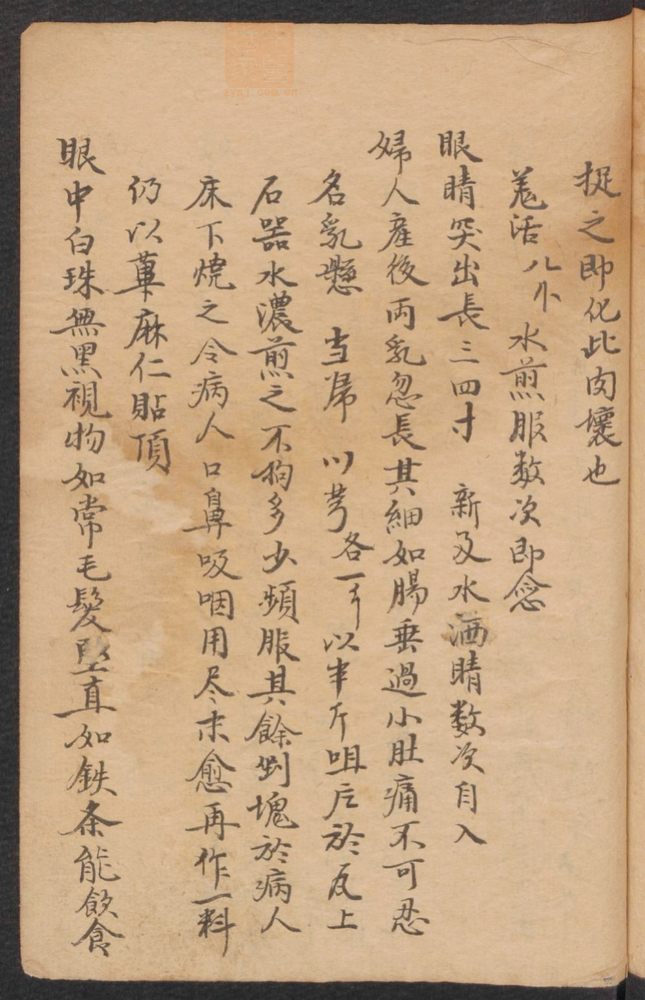 捉之即化此肉壞也
羗活八卜水煎服数次即愈
眼睛突出長三四寸 新及水洒睛数次自入
婦人産後両乳忽長其細如腸垂過小肚痛不可忍
名乳懸 当㱕 川芎各一斤以半斤咀后於瓦上
石器水濃煎之不拘多少頻服其餘剉塊於病人
床下燒之令病人口鼻吸咽用尽未愈再作一料
仍以萆麻仁貼頂
眼中白珠無黑視物如常毛髮堅直如鉄条能飲食